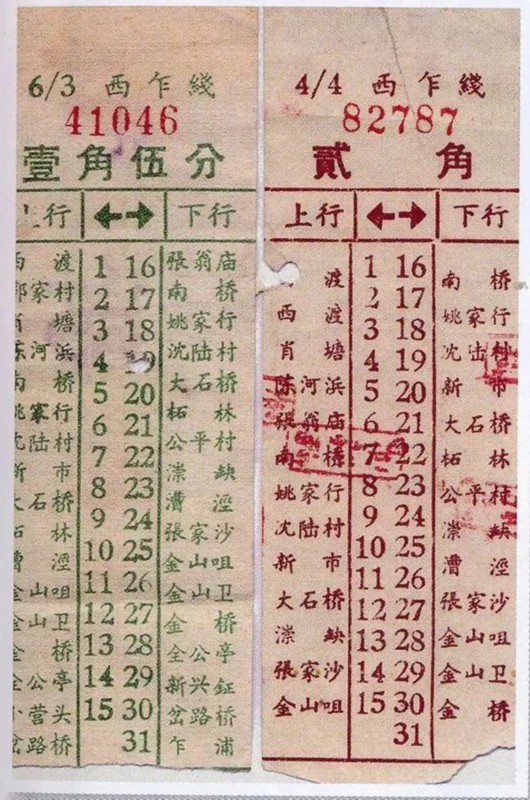 6/3 西乍綫
41046
壹角伍分
上行 ←→ 下行
西渡
家村
肖塘
陈河浜
南桥
姚家行
沈陆村
新市
大石桥
林
漕涇
金山咀
金山卫
金桥
全公亭
小营头
岔路桥
1 16
2 17
3 18
4 19
5 20
6 21
7 22
8 23
9 24
10 25
11 26
12 27
13 28
14 29
15 30
31
張翁庙
南桥
姚家行
沈陆村
大石桥
柘林
公平村
漴缺
漕涇
張家沙
金山咀
金山卫
金桥
全公亭
新兴鉦
岔路桥
乍浦
4/4 西乍綫
82787
貳角
上行 ←→ 下行
渡
西渡
肖塘
陈河浜
張翁庙
南桥
姚家行
沈陆村
新市
大石桥
漴缺
張家沙
金山咀
1 16
2 17
3 18
4 19
5 20
6 21
7 22
8 23
9 24
10 25
11 26
12 27
13 28
14 29
15 30
31
南桥
姚家行
沈陆村
新市
大石桥
柘林
公平村
漴缺
漕涇
張家沙
金山咀
金山卫
金桥